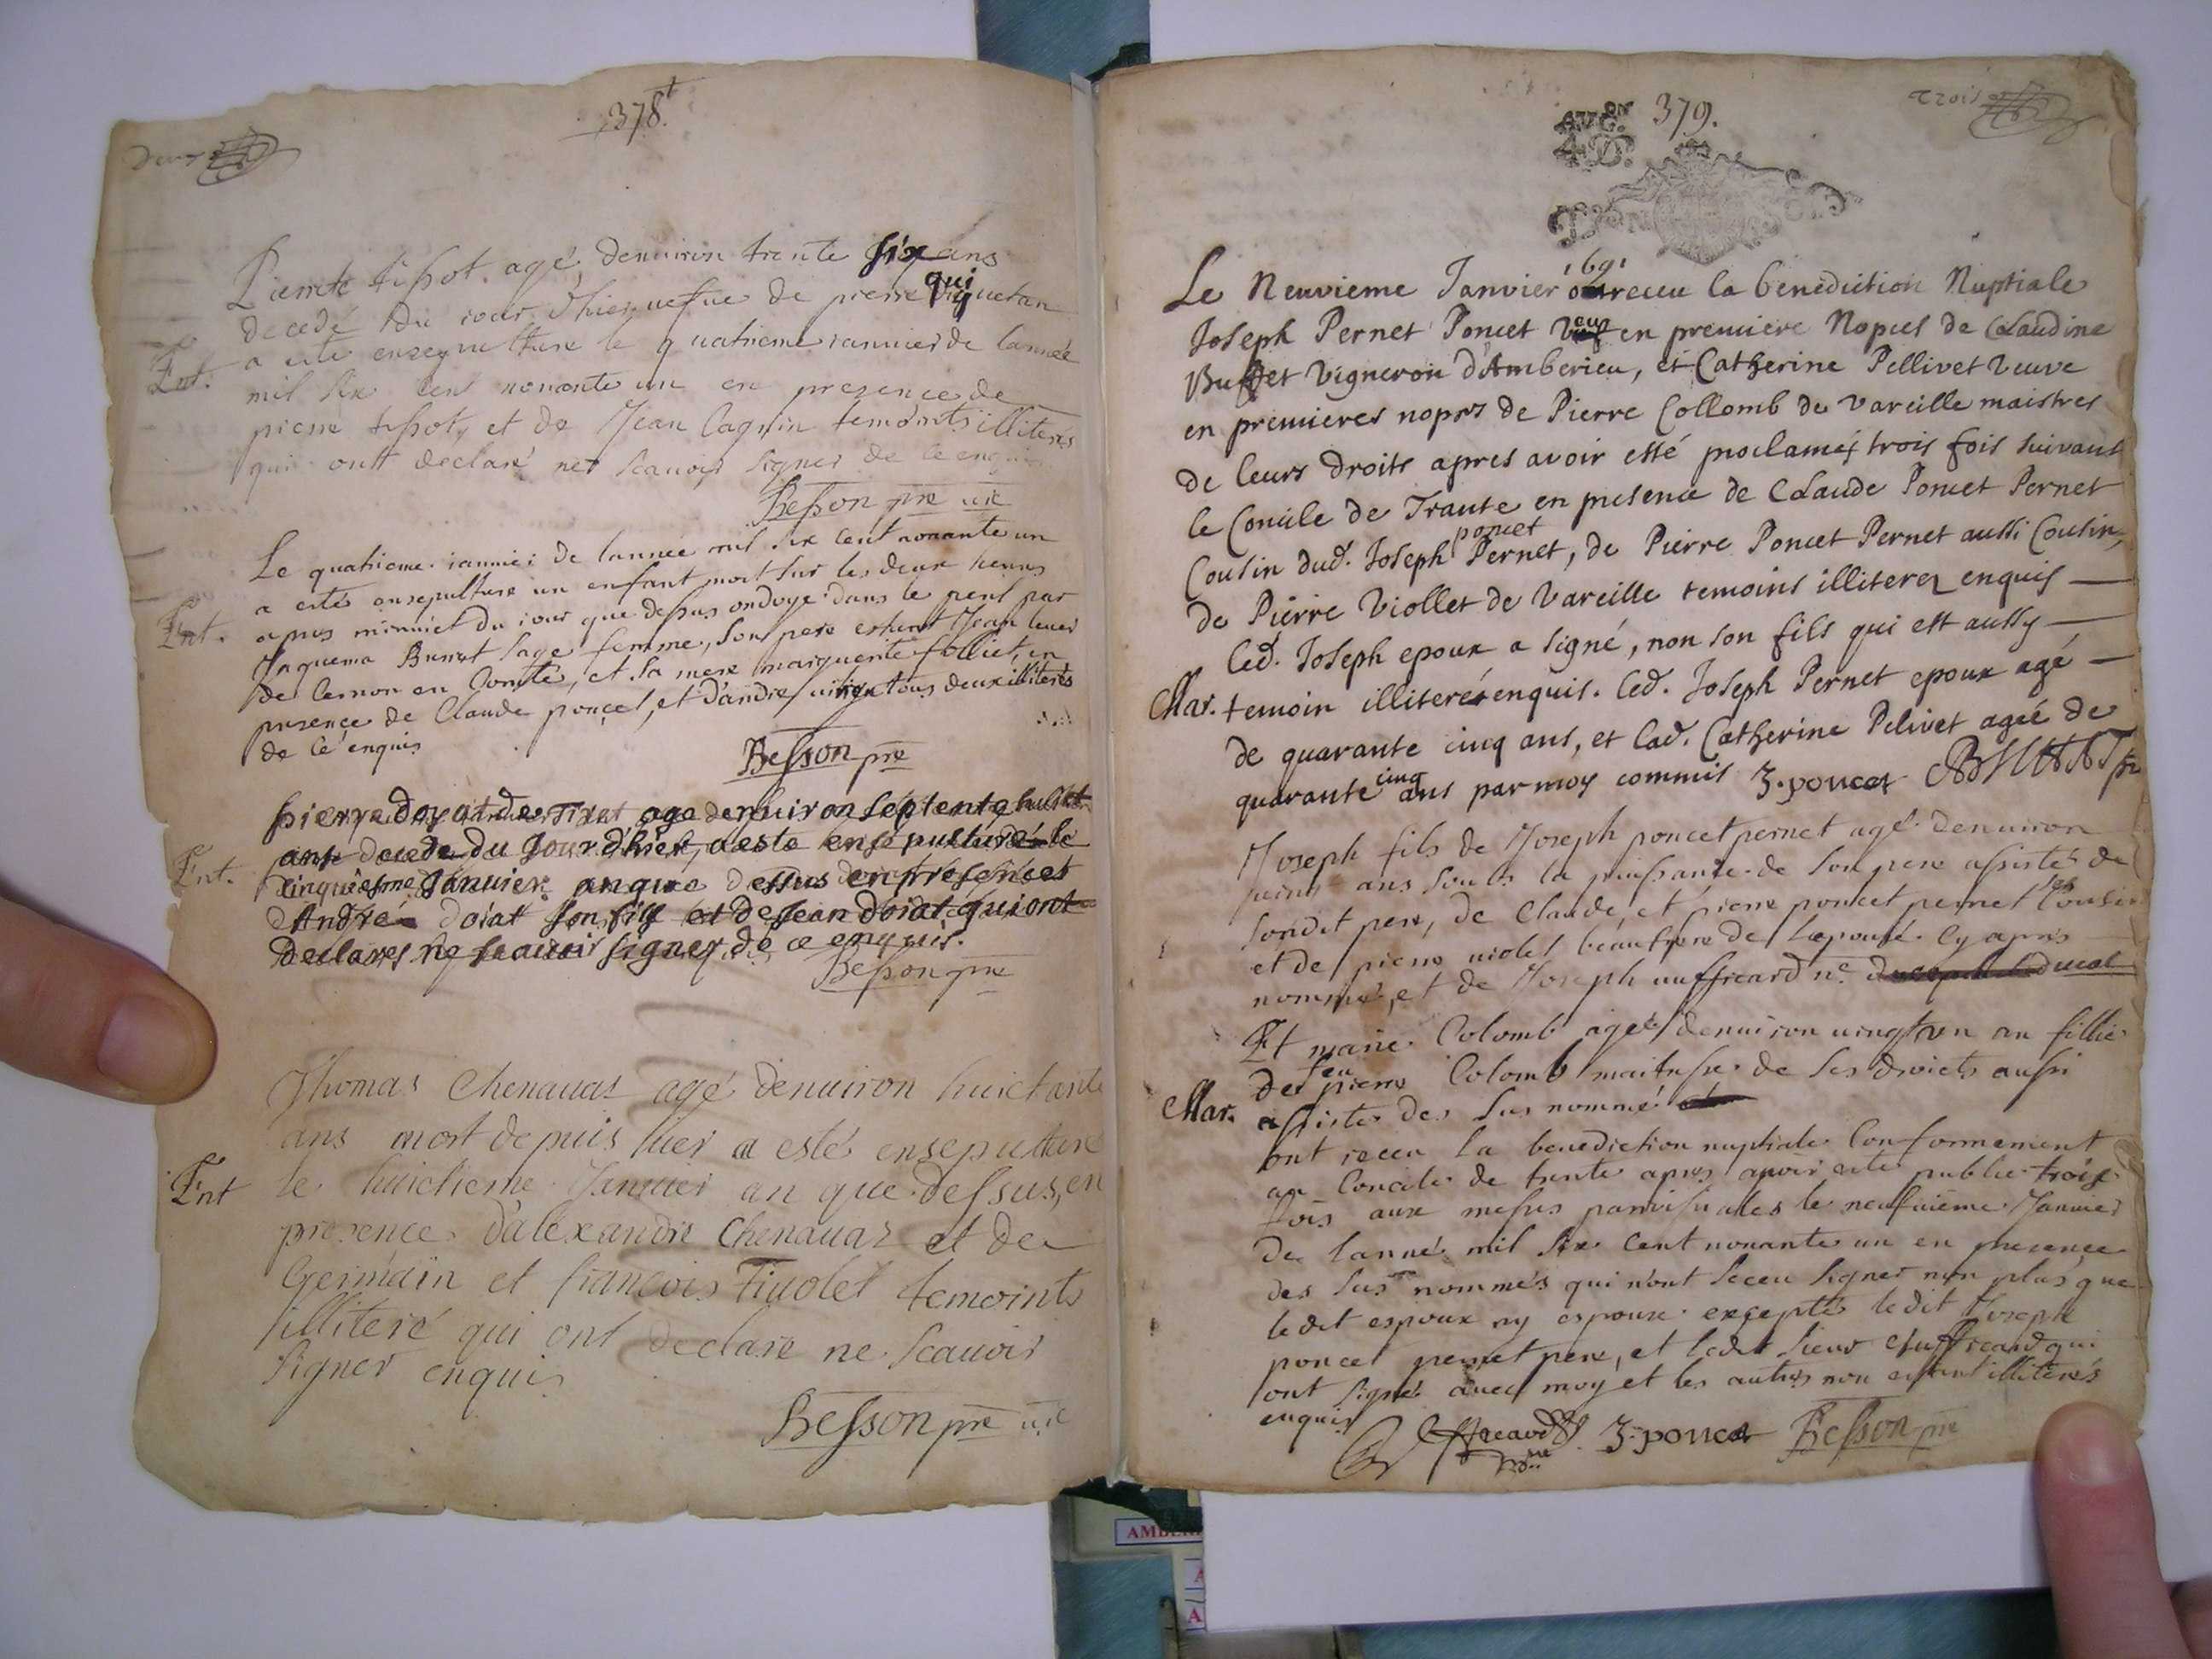 deux
378
Pierrete tissot agé denuiron trente six ans
decedé du iour d'hier uefue de pierre
a esté enzepulture le quatrieme ianuier de lannée
Ent.
mil six cent nonante un en presence de
pierre tissot, et de Jean Caquin temoints illiterés
qui ont declaré ne scauoir signer de ce enquis
Besson pre uic
Le quatrieme ianuier de lannée mil six cent nonante un
a esté ensepulture un enfant mort sur les deux heures
apres minuict du iour que dessus ondoyé dans le peril par
Ent.
Jaquema Brunet sage femme, son pere estant Jean
de Cernon en Comté, et sa mere marguerite folliet, en
presence de Claude ponçet, et d'andré tous deux illiterés
de ce enquis
Besson pre
pierre doyat de Tiret age denuiron septente huict
ans decede du Jour d'hier, a este ensepulturé le
Ent.
cinquiesme Januier an que dessus en presences
d'André doiat son fils et de Jean doiat qui ont
declares ne scauoir signer de ce enquis.
Besson pre
Thomas Chenauaz agé denuiron huictante
ans mort depuis hier a esté ensepulturé
Ent
le huictieme Januier an que dessus, en
presence d'alexandre Chenauaz et de
Germain et françois Tiuolet temoints
illiteré qui ont declare ne scauoir
signer enquis
Besson pre uic
379.
trois
Le Neuvieme Janvier 1691 ont receu la benediction Nuptiale
Joseph Pernet Poncet veuf en premiere Nopces de Claudine
Buffet vigneron d'Amberieu, et Catherine Pellivet veuve
en premieres nopces de Pierre Collomb de vareille maistres
de leurs droits apres avoir esté proclamés trois fois suivant
le Concile de Trante en presence de Claude Poncet Pernet
Cousin dud. Joseph poncet Pernet, de Pierre Poncet Pernet aussi Cousin,
de Pierre Viollet de Vareille temoins illiterez enquis
Led. Joseph epoux a signé, non son fils qui est aussy
Mar.
temoin illiteré enquis. Led. Joseph Pernet epoux agé
de quarante cinq ans, et lad. Catherine Pelivet ageé de
quarante cinq ans par moy commis J. poncet
Joseph fils de Joseph poncet pernet agé denuiron
ans soubs la puissance de son pere assistés de
sondit pere, de Claude, et pierre poncet pernet ses Cousins
et de pierre uiolet beaufrere de lepouse cy apres
nommé, et de Joseph auffreard
Et marie Colomb ageé denuiron uingt un an fillie
de feu pierre Colomb maitresse de ses droicts aussi
Mar.
assistes des sus nommé
ont receu la benediction nuptiale Conformement
au Concile de trente apres auoir esté publié trois
fois aux messes parroissiales le neufuième Januier
de lanné mil six Cent nonante un en presence
des sus nommés qui n'ont sceu signer non plus que
ledit espoux ny espouse excepté ledit Joseph
poncet pernet pere, et ledit sieur auffreard qui
ont signé auec moy et les autres non estant illiterés
enquis
J. poncet Besson pre